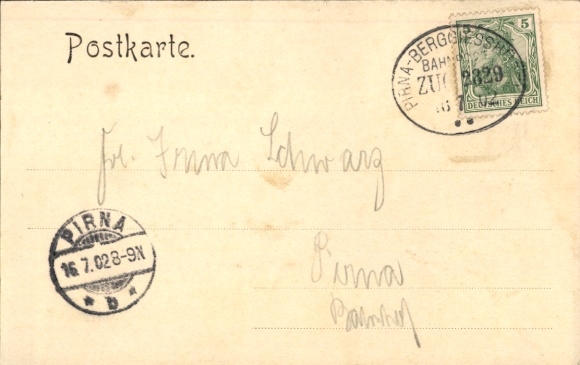 Postkarte.
5
DEUTSCHES REICH
PIRNA-BERGGIESSHÜBEL
BAHNPOST
ZUG 2329
16 7 02
Frl. Emma Schwarz
PIRNA
16.7.02 8-9N
* b *
Pirna
Bahnhof